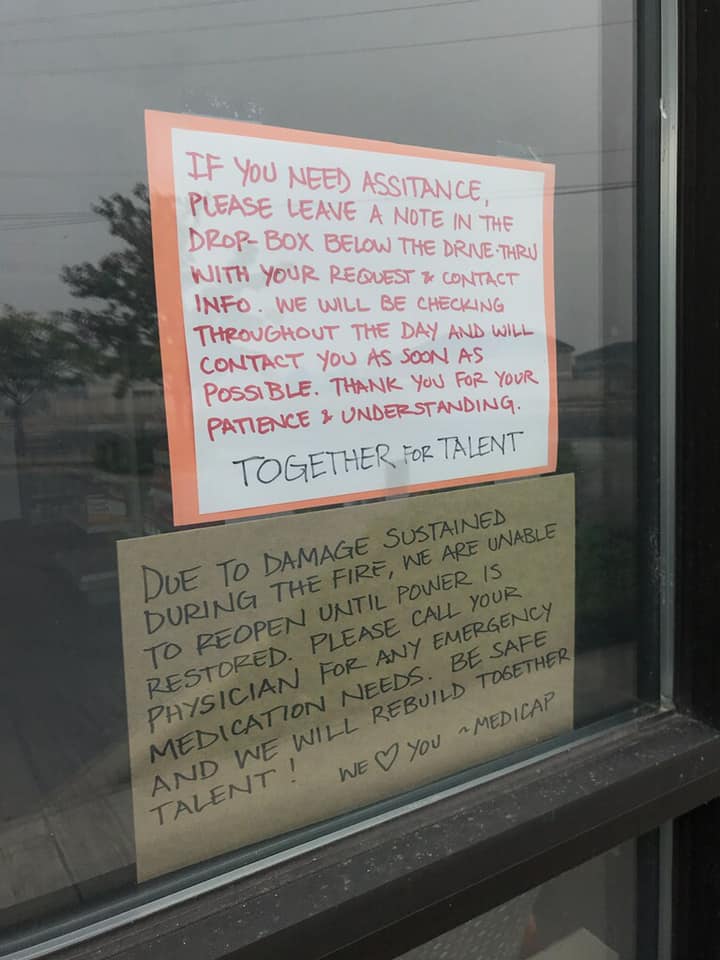 IF YOU NEED ASSITANCE,
PLEASE LEAVE A NOTE IN THE
DROP-BOX BELOW THE DRIVE-THRU
WITH YOUR REQUEST & CONTACT
INFO. WE WILL BE CHECKING
THROUGHOUT THE DAY AND WILL
CONTACT YOU AS SOON AS
POSSIBLE. THANK YOU FOR YOUR
PATIENCE & UNDERSTANDING.
TOGETHER FOR TALENT
DUE TO DAMAGE SUSTAINED
DURING THE FIRE, WE ARE UNABLE
TO REOPEN UNTIL POWER IS
RESTORED. PLEASE CALL YOUR
PHYSICIAN FOR ANY EMERGENCY
MEDICATION NEEDS. BE SAFE
AND WE WILL REBUILD TOGETHER
TALENT! WE ♡ YOU ~MEDICAP